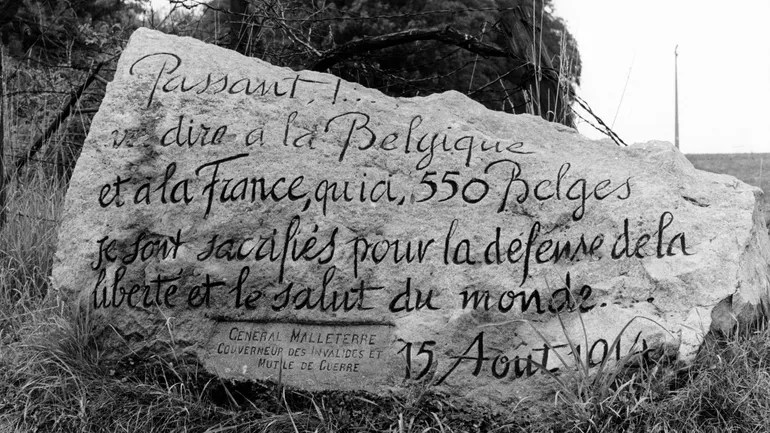 Passant, !...
va dire à la Belgique
et à la France, qu'ici, 550 Belges
se sont sacrifiés pour la défense de la
liberté et le salut du monde...
GENERAL MALLETERRE
GOUVERNEUR DES INVALIDES ET
MUTILE DE GUERRE
15 Août 1914